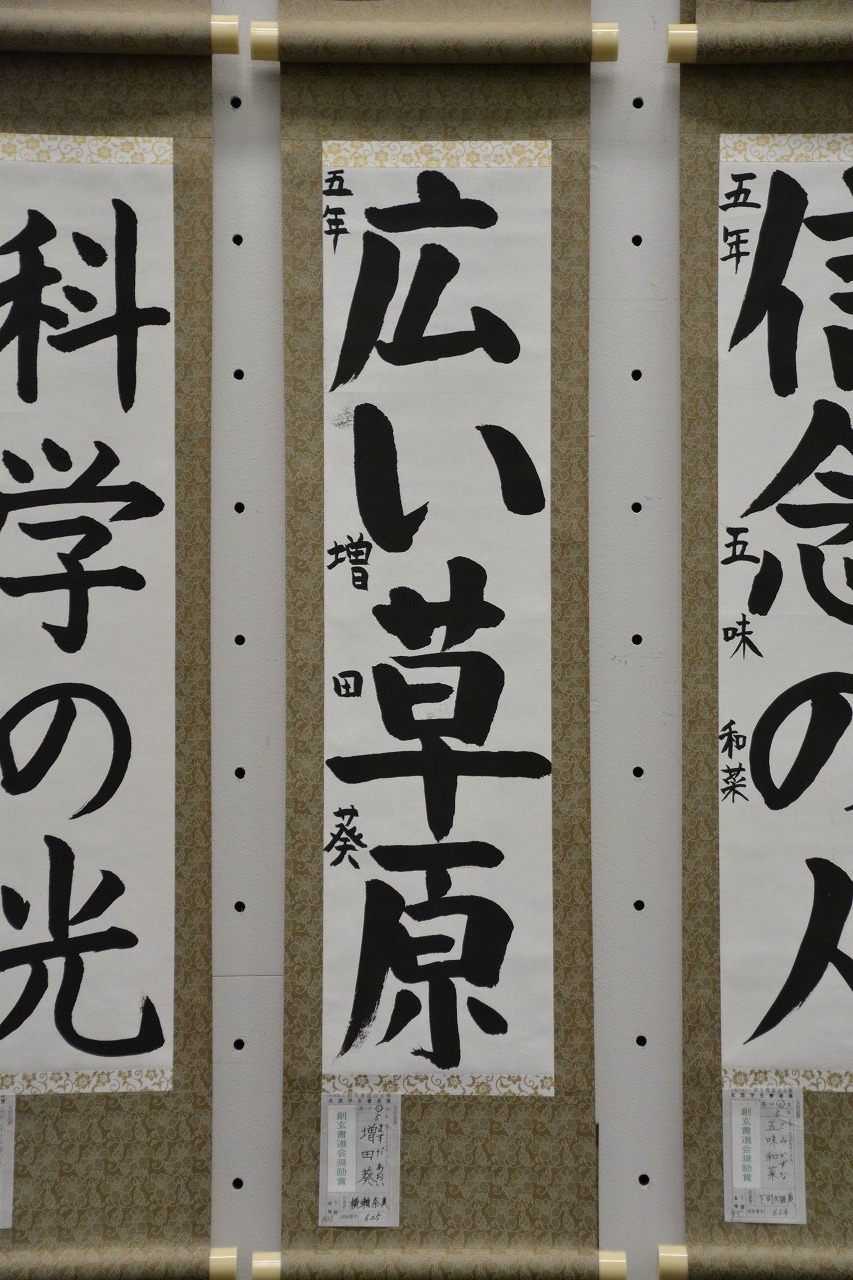 科学の光
五年
広い草原
増田葵
五年
信念の人
五味和菜
創玄書道会奨励賞
ますだ あおい
増田葵
625
創玄書道会奨励賞
ごみ かずな
五味和菜
624